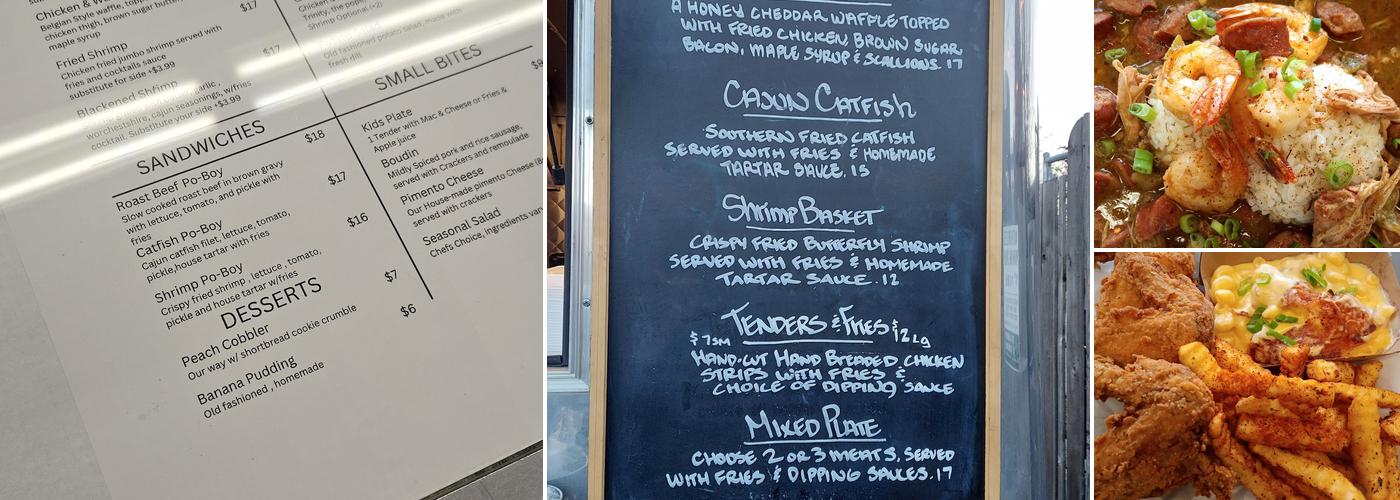 Chicken & Wa
Belgian style waffle, topp
chicken thigh, brown sugar butter,
maple syrup
$17
Fried Shrimp
Chicken fried jumbo shrimp served with
fries and cocktails sauce
substitute for side +$3.99
$17
Blackened Shrimp
worchestshire, cajun seasonings, w/fries
cocktail. Substitute your side +$3.99
Trinity, the pope
Shrimp Optional (+2)
Old fashioned potato salad, made with
fresh dill
SANDWICHES
$18
Roast Beef Po-Boy
Slow cooked roast beef in brown gravy
with lettuce, tomato, and pickle with
fries
$17
Catfish Po-Boy
Cajun catfish filet, lettuce, tomato,
pickle,house tartar with fries
$16
Shrimp Po-Boy
Crispy fried shrimp , lettuce , tomato,
pickle and house tartar w/fries
DESSERTS
$7
Peach Cobbler
Our way w/ shortbread cookie crumble
$6
Banana Pudding
Old fashioned , homemade
SMALL BITES
Kids Plate
1 Tender with Mac & Cheese or Fries &
Apple juice
Boudin
Mildly Spiced pork and rice sausage,
served with Crackers and remoulade
Pimento Cheese
Our House-made pimento Cheese (8o
served with crackers
Seasonal Salad
Chefs Choice, ingredients vary
A HONEY CHEDDAR WAFFLE TOPPED
WITH FRIED CHICKEN, BROWN SUGAR,
BACON, MAPLE SYRUP & SCALLIONS. 17
CAJUN CATFISH
SOUTHERN FRIED CATFISH
SERVED WITH FRIES & HOMEMADE
TARTAR SAUCE. 15
SHRIMP BASKET
CRISPY FRIED BUTTERFLY SHRIMP
SERVED WITH FRIES & HOMEMADE
TARTAR SAUCE. 12
TENDERS & FRIES
$7SM $12Lg
HAND-CUT HAND BREADED CHICKEN
STRIPS WITH FRIES &
CHOICE OF DIPPING SAUCE
MIXED PLATE
CHOOSE 2 OR 3 MEATS, SERVED
WITH FRIES & DIPPING SAUCES. 17